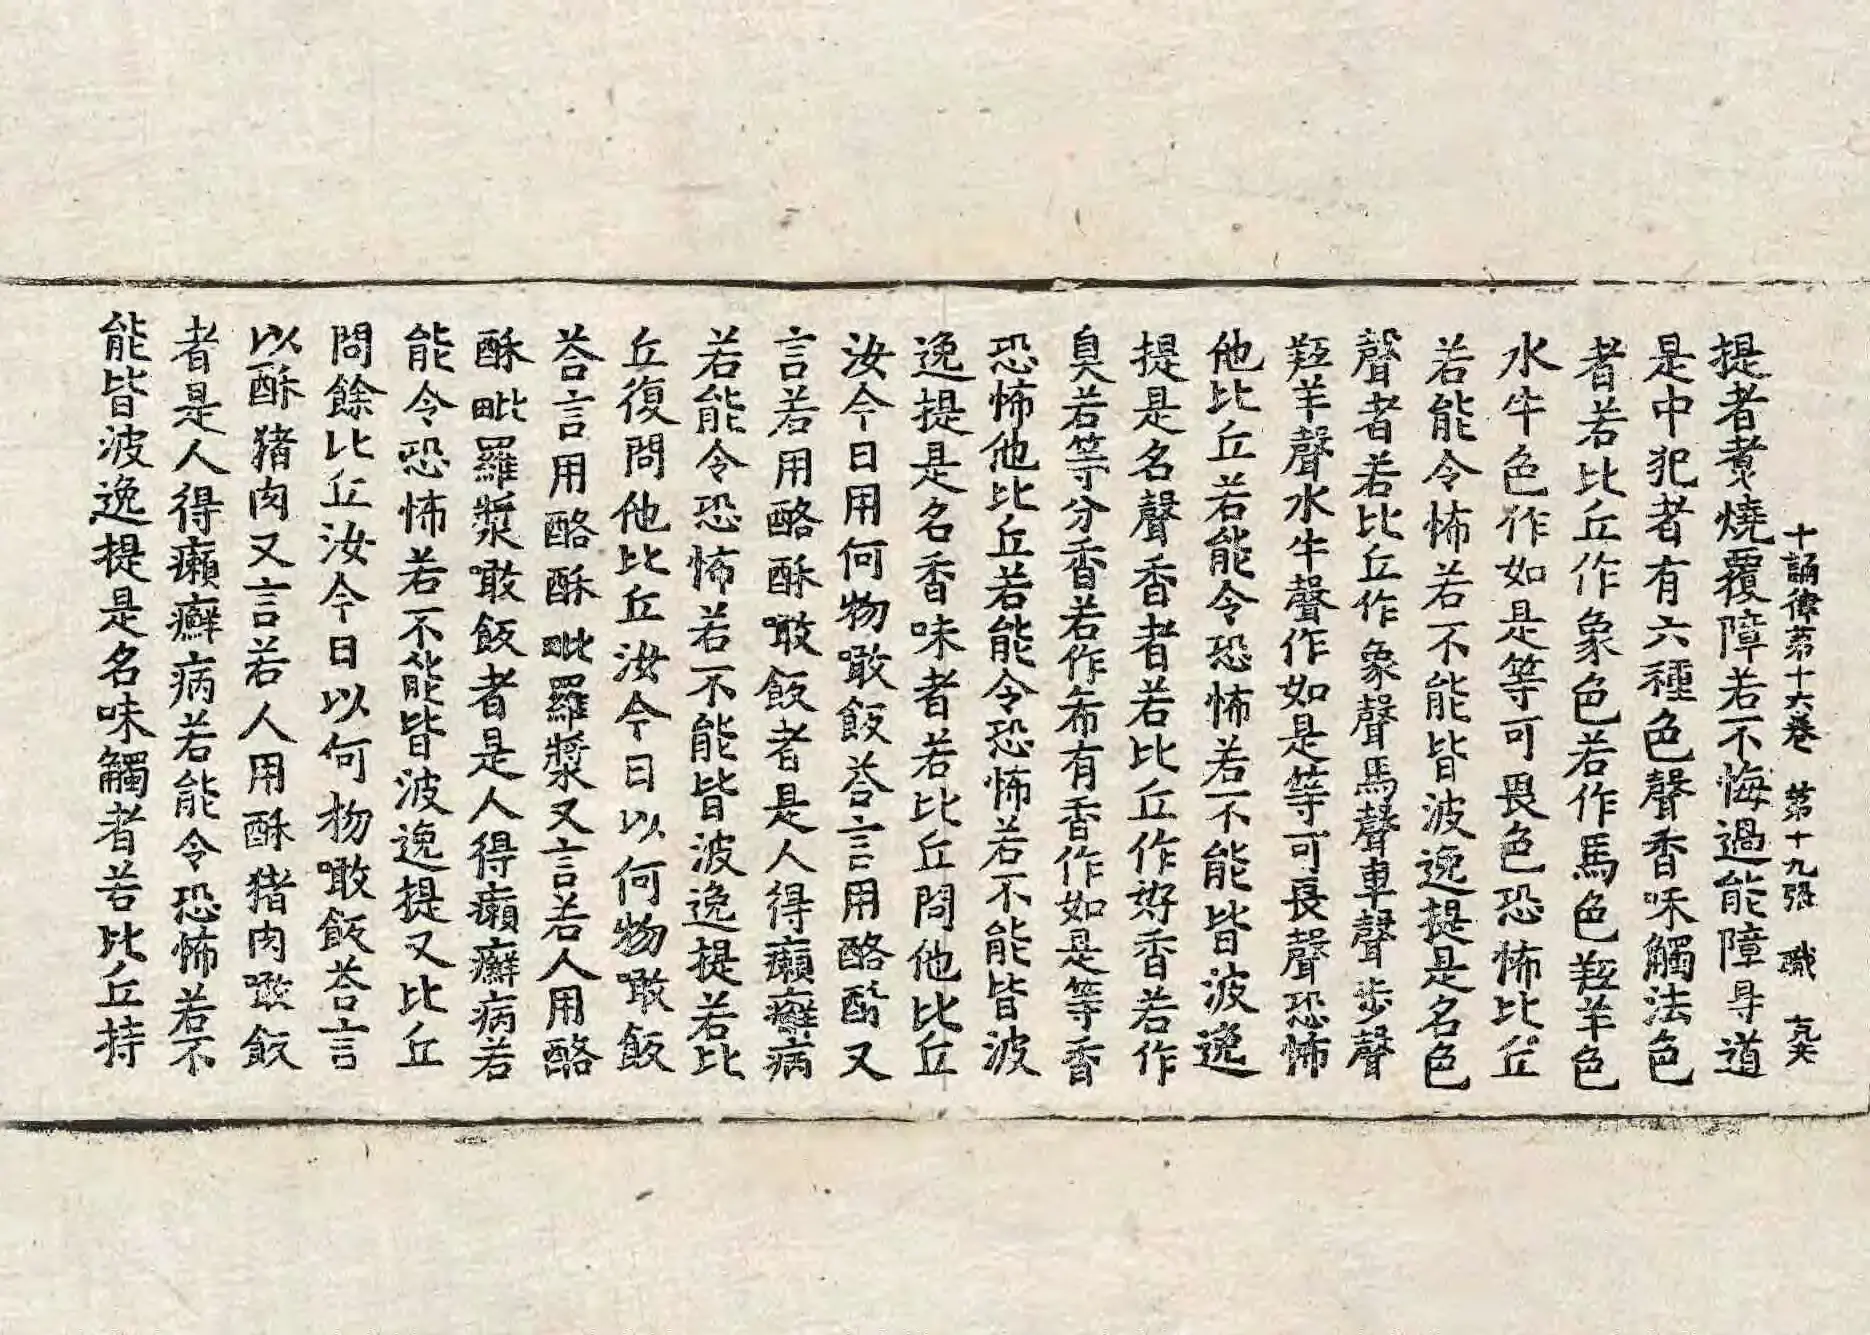 十誦律第十六卷　第十九張　職
提者煑燒覆障若不悔過能障㝵道
是中犯者有六種色聲香味觸法色
者若比丘作象色若作馬色羖羊色
水牛色作如是等可畏色恐怖比丘
若能令怖若不能皆波逸提是名色
聲者若比丘作象聲馬聲車聲步聲
羖羊聲水牛聲作如是等可畏聲恐怖
他比丘若能令恐怖若不能皆波逸
提是名聲香者若比丘作好香若作
臭若等分香若作希有香作如是等香
恐怖他比丘若能令恐怖若不能皆波
逸提是名香味者若比丘問他比丘
汝今日用何物噉飯荅言用酪酥又
言若用酪酥噉飯者是人得癩癬病
若能令恐怖若不能皆波逸提若比
丘復問他比丘汝今日以何物噉飯
荅言用酪酥毗羅漿又言若人用酪
酥毗羅漿噉飯者是人得癩癬病若
能令恐怖若不能皆波逸提又比丘
問餘比丘汝今日以何物噉飯荅言
以酥猪肉又言若人用酥猪肉噉飯
者是人得癩癬病若能令恐怖若不
能皆波逸提是名味觸者若比丘持